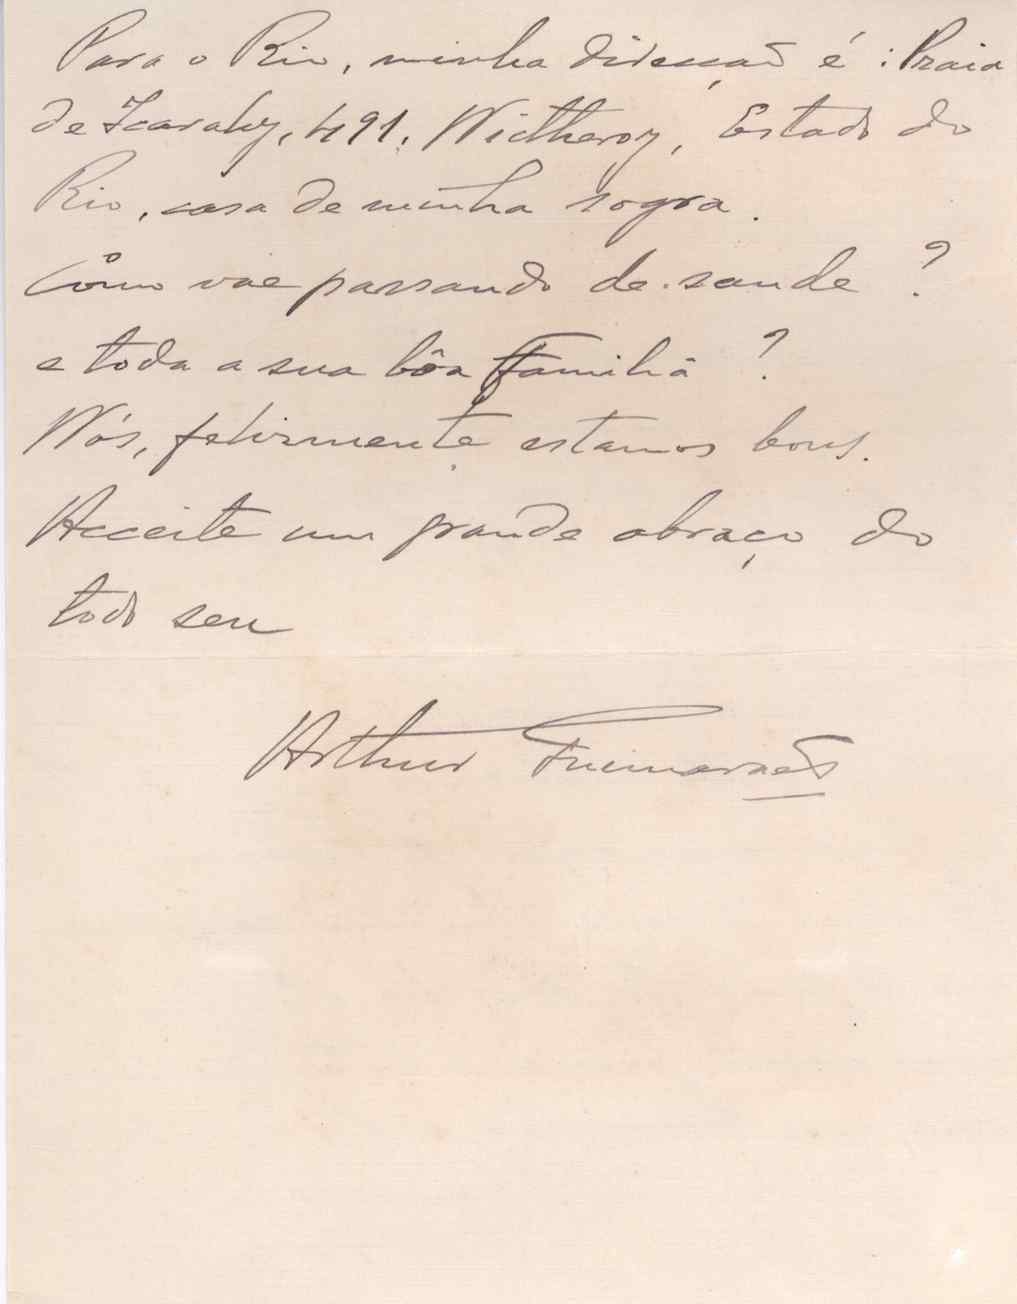 Para o Rio, minha direcção é: Praia
de Icarahy, 491, Nictheroy, Estado do
Rio, casa de minha sogra.
Como vae passando de saude?
e toda a sua bôa Familia?
Nós, felizmente estamos bons.
Acceite um grande abraço do
todo seu
Arthur Guimarães